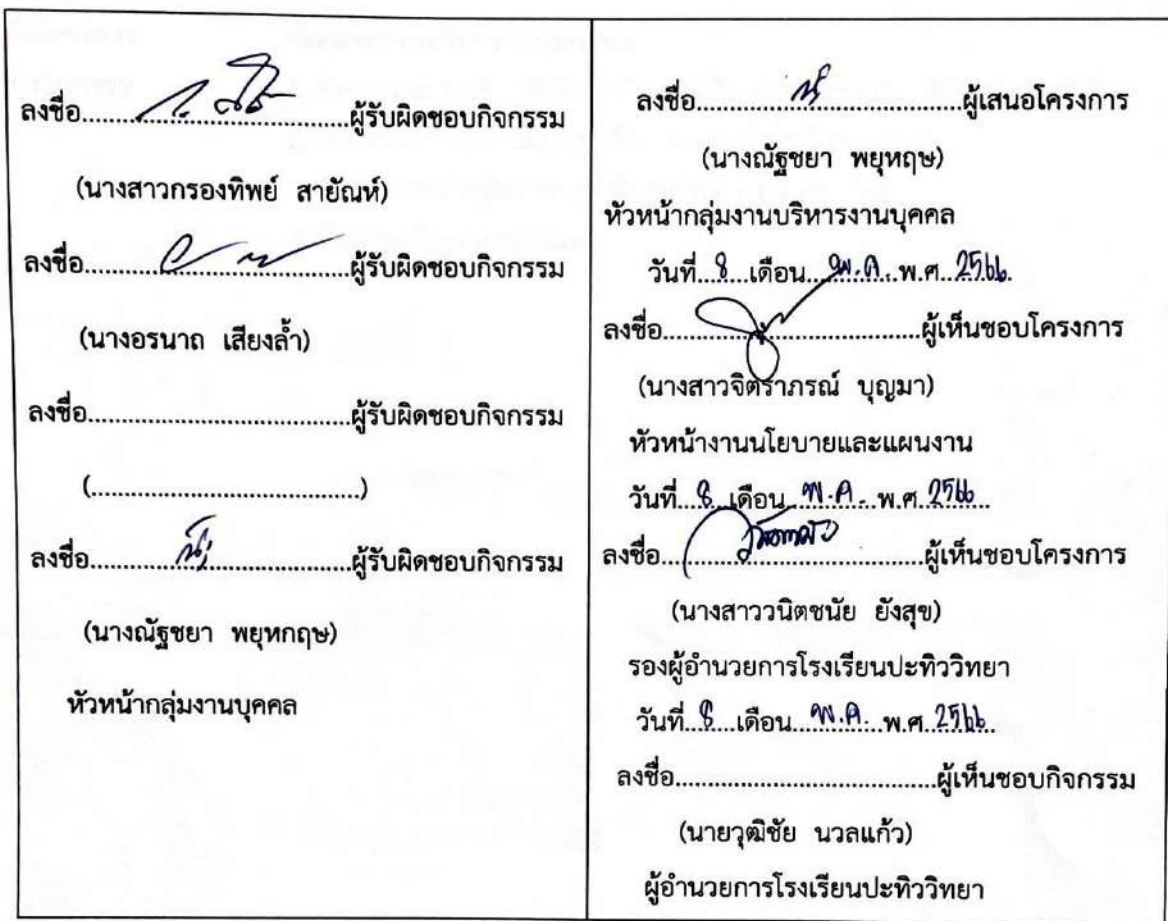 ลงชื่อ....................ผู้รับผิดชอบกิจกรรม
(นางสาวกรองทิพย์ สายัณห์)
ลงชื่อ....................ผู้รับผิดชอบกิจกรรม
(นางอรนาถ เสียงล้ำ)
ลงชื่อ....................ผู้รับผิดชอบกิจกรรม
(....................)
ลงชื่อ....................ผู้รับผิดชอบกิจกรรม
(นางณัฐชยา พยุหกฤษ)
หัวหน้ากลุ่มงานบุคคล
ลงชื่อ....................ผู้เสนอโครงการ
(นางณัฐชยา พยุหฤษ)
หัวหน้ากลุ่มงานบริหารงานบุคคล
วันที่ 8 เดือน พ.ค. พ.ศ. 2566
ลงชื่อ....................ผู้เห็นชอบโครงการ
(นางสาวจิตราภรณ์ บุญมา)
หัวหน้างานนโยบายและแผนงาน
วันที่ 8 เดือน พ.ค. พ.ศ. 2566
ลงชื่อ....................ผู้เห็นชอบโครงการ
(นางสาววนิตชนัย ยังสุข)
รองผู้อำนวยการโรงเรียนปะทิววิทยา
วันที่ 8 เดือน พ.ค. พ.ศ. 2566
ลงชื่อ....................ผู้เห็นชอบกิจกรรม
(นายวุฒิชัย นวลแก้ว)
ผู้อำนวยการโรงเรียนปะทิววิทยา